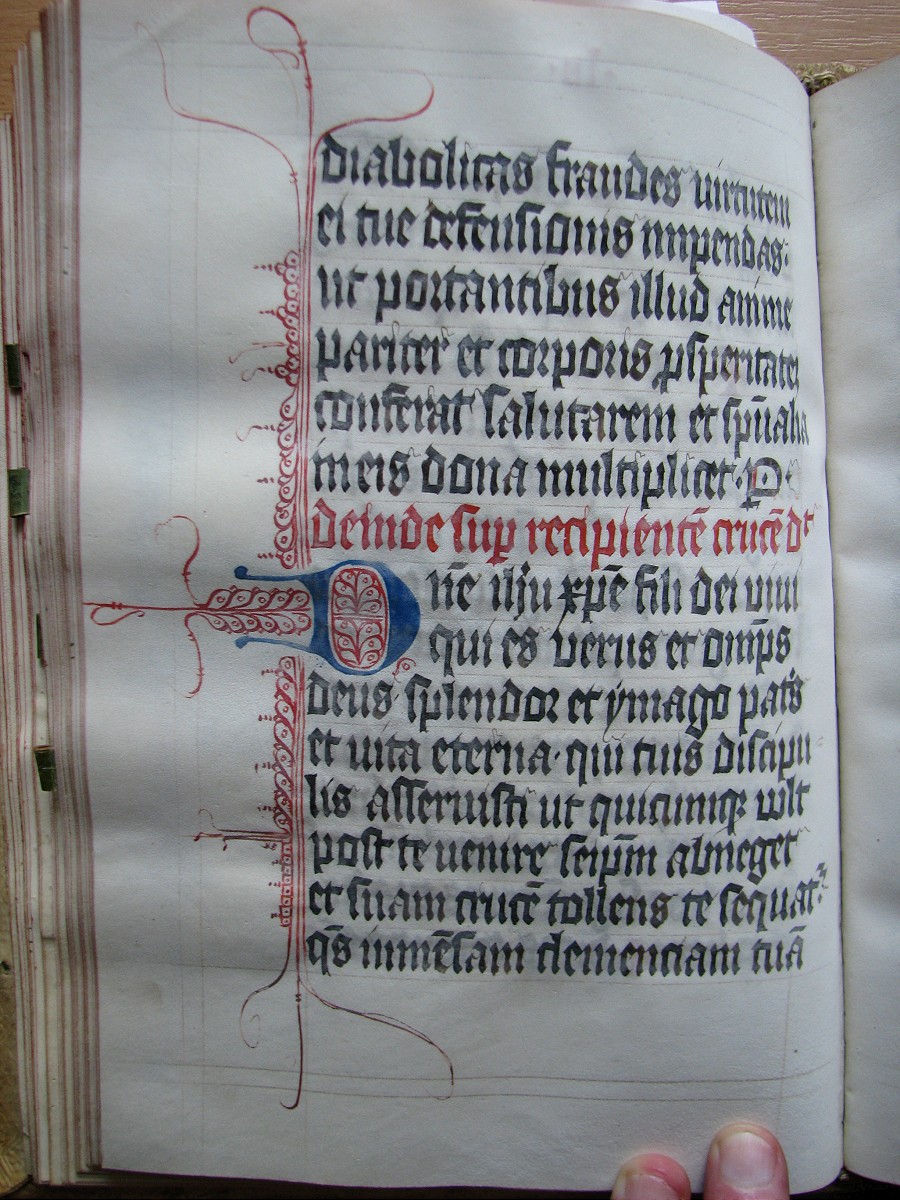 diabolicas fraudes uirtutem
ei tue defensionis impendas.
ut portantibus illud anime
pariter et corporis ꝓsperitatē
conferat salutarem et sp̄ualia
in eis dona multiplicet. P
deinde sup recipientē crucē dt
Dn̄e ih̄u xp̄e fili dei uiui
qui es uerus et omp̄s
deus splendor et ymago pat's
et uita eterna. qui tuis discipu
lis asseruisti ut quicunqꝫ wlt
post te uenire seip̄m abneget
et suam crucē tollens te sequat'
q̄s inmēsam clemenciam tuā